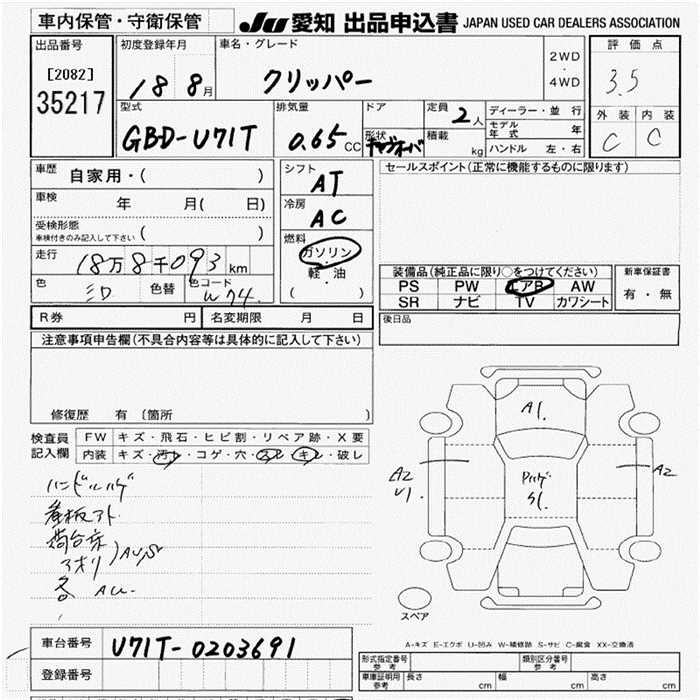 車内保管・守衛保管
JU 愛知 出品申込書 JAPAN USED CAR DEALERS ASSOCIATION
出品番号
[2082]
35217
初度登録年月
18 8月
車名・グレード
クリッパー
2WD
・
4WD
評価点
3.5
外装 内装
C C
型式
GBD-U71T
排気量
0.65 CC
ドア
形状
定員
2人
積載
kg
ディーラー・並行
モデル年式 年
ハンドル 左・右
車歴
自家用・( )
車検
年 月( 日)
受検形態
車検付きのみ記入して下さい ( )
走行
18万8千093km
色
色替
色コード
W74.
シフト
AT
冷房
AC
燃料
ガソリン
・
軽・油
( )
セールスポイント(正常に機能するものに限ります)
装備品(純正品に限り○をつけてください)
PS PW エアB AW
SR ナビ TV カワシート
新車保証書
有・無
R券 円 名変期限 月 日
後日品
注意事項申告欄(不具合内容等は具体的に記入して下さい)
修復歴 有 〔箇所 〕
検査員
記入欄
FW キズ・飛石・ヒビ割・リペア跡・X要
内装 キズ・汚レ・コゲ・穴・スレ・キレ・破レ
ハンドルハゲ
看板アト
荷台床
アオリ
各 AU
A1.
A2
U1.
S1.
A2
スペア
A-キズ E-エクボ U-凹み W-補修跡 S-サビ C-腐食 XX-交換済
車台番号
U71T-0203691
登録番号
形式指定番号
参考
類別区分番号
参考
車庫証明用
参考
長さ cm 幅 cm 高さ cm